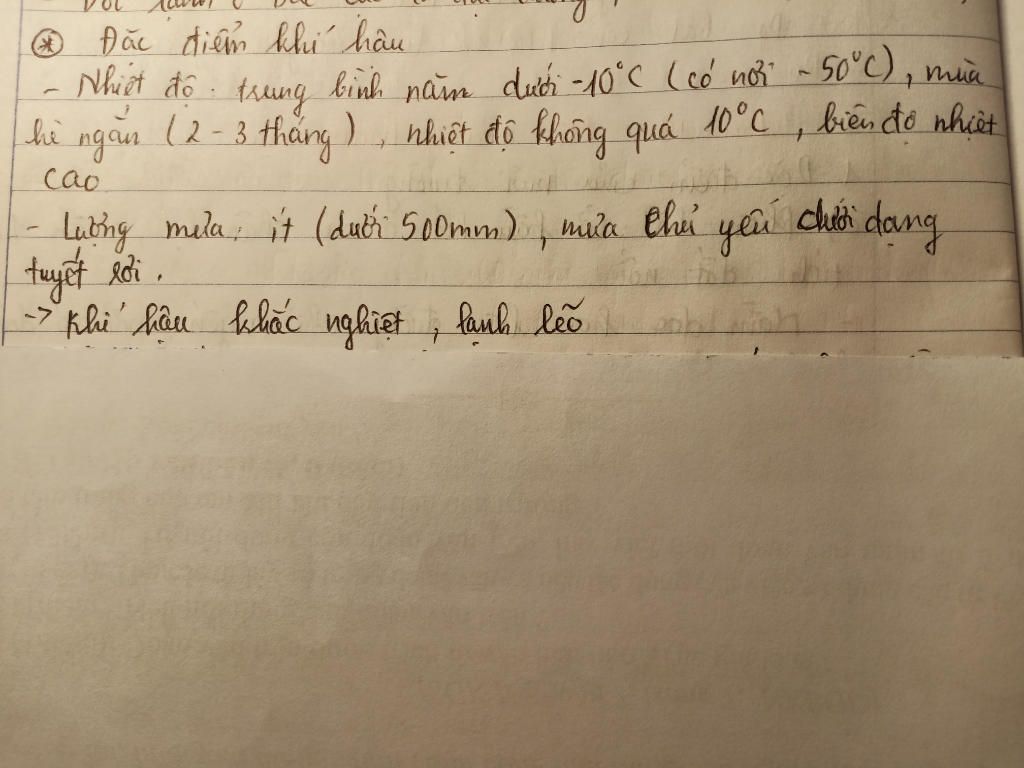 ⊛ Đặc điểm khí hậu
- Nhiệt độ: trung bình năm dưới -10°C (có nơi -50°C), mùa
hè ngắn (2 - 3 tháng), nhiệt độ không quá 10°C, biên độ nhiệt
cao
- Lượng mưa: ít (dưới 500mm), mưa chủ yếu dưới dạng
tuyết rơi.
-> Khí hậu khắc nghiệt, lạnh lẽo